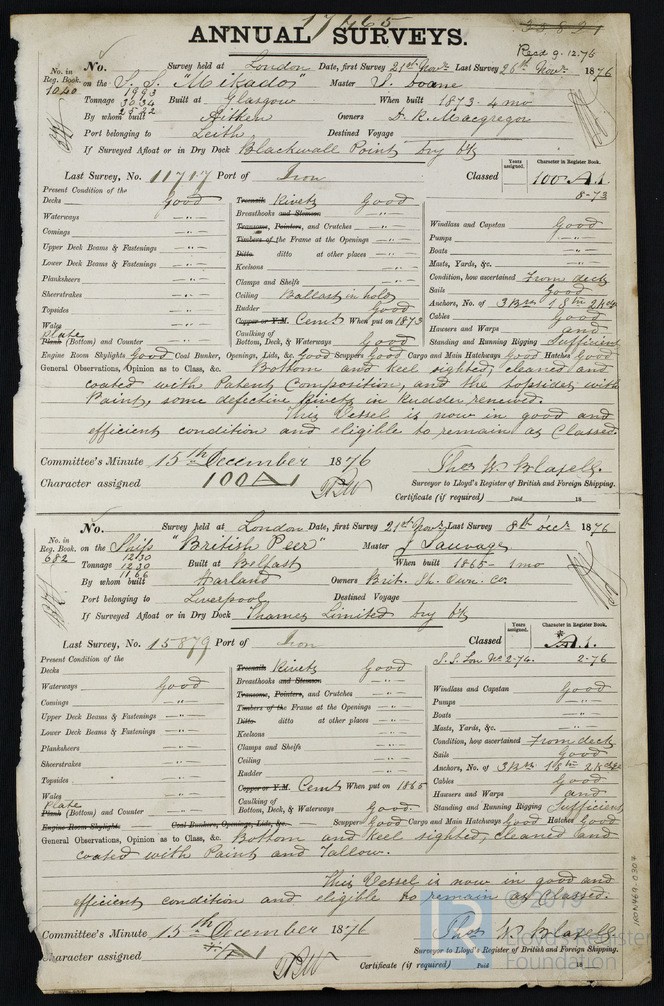 17465
ANNUAL SURVEYS.
Recd 9.12.76
No. in Reg. Book. 1040
No. Survey held at London Date, first Survey 21st Novr. Last Survey 26th Novr. 1876
on the S.S. "Mikado" Master S. Doane
Tonnage 1993 3034 2522 Built at Glasgow When built 1873 - 4 mo
By whom built Aitken Owners D. R. Macgregor
Port belonging to Leith Destined Voyage
If Surveyed Afloat or in Dry Dock Blackwall Point Dry Dk
Last Survey, No. 11717 Port of Iron Classed
Years assigned.
Character in Register Book. 100 A.1.
8-73
Present Condition of the
Decks Good
Waterways -"-
Comings -"-
Upper Deck Beams & Fastenings -"-
Lower Deck Beams & Fastenings -"-
Planksheers -"-
Sheerstrakes -"-
Topsides -"-
Wales -"-
Plate
Plank (Bottom) and Counter -"-
Treenails Rivets Good
Breasthooks and Stemson -"-
Transoms, Pointers, and Crutches -"-
Timbers of the Frame at the Openings -"-
Ditto ditto at other places -"-
Keelsons -"-
Clamps and Shelfs -"-
Ceiling Ballast in hold
Rudder Good
Copper or Y.M. Cemt. When put on 1873
Caulking of Bottom, Deck, & Waterways Good
Windlass and Capstan Good
Pumps -"-
Boats -"-
Masts, Yards, &c. -"-
Condition, how ascertained From deck
Sails Good
Anchors, No. of 3 Brs. 1 Stm 2 Kdg
Cables Good
Hawsers and Warps and
Standing and Running Rigging Sufficient
Engine Room Skylights Good Coal Bunker, Openings, Lids, &c. Good Scuppers Good Cargo and Main Hatchways Good Hatches Good
General Observations, Opinion as to Class, &c. Bottom and Keel sighted, cleaned and
coated with Patent Composition, and the topsides with
Paint, some defective Rivets in Rudder renewed.
This Vessel is now in good and
efficient condition and eligible to remain as Classed.
Committee's Minute 15th December 1876
Character assigned 100 A 1
Thos W Blaxell.
Surveyor to Lloyd's Register of British and Foreign Shipping.
Certificate (if required) Paid 18
No. in Reg. Book. 682
No. Survey held at London Date, first Survey 21st Novr. Last Survey 8th Decr 1876
on the Ship "British Peer" Master J Sauvage
Tonnage 1230 1220 1166 Built at Belfast When built 1865 - 1 mo
By whom built Harland Owners Brit. Sh. Own. Co.
Port belonging to Liverpool Destined Voyage
If Surveyed Afloat or in Dry Dock Thames Limited Dry Dk
Last Survey, No. 15879 Port of Iron Classed
Years assigned.
Character in Register Book. A.1.
S.S. Lon No 2-76. 2-76
Present Condition of the
Decks
Waterways Good
Comings -"-
Upper Deck Beams & Fastenings -"-
Lower Deck Beams & Fastenings -"-
Planksheers -"-
Sheerstrakes -"-
Topsides -"-
Wales -"-
Plate
Plank (Bottom) and Counter -"-
Treenails Rivets Good
Breasthooks and Stemson -"-
Transoms, Pointers, and Crutches -"-
Timbers of the Frame at the Openings -"-
Ditto ditto at other places -"-
Keelsons -"-
Clamps and Shelfs -"-
Ceiling -"-
Rudder -"-
Copper or Y.M. Cemt. When put on 1865
Caulking of Bottom, Deck, & Waterways Good.
Windlass and Capstan Good
Pumps -"-
Boats -"-
Masts, Yards, &c. -"-
Condition, how ascertained From deck
Sails Good
Anchors, No. of 3 Brs. 1 Stm 2 Kdge
Cables Good
Hawsers and Warps and
Standing and Running Rigging Sufficient
Engine Room Skylights Coal Bunkers, Openings, Lids, &c. Scuppers Good Cargo and Main Hatchways Good Hatches Good
General Observations, Opinion as to Class, &c. Bottom and Keel sighted, cleaned and
coated with Paint and Tallow.
This Vessel is now in good and
efficient condition and eligible to remain as Classed.
Committee's Minute 15th December 1876
Character assigned A 1
Thos W Blaxell
Surveyor to Lloyd's Register of British and Foreign Shipping.
Certificate (if required) Paid 18
IRON469-0307
© 2019
Lloyd's Register
Foundation